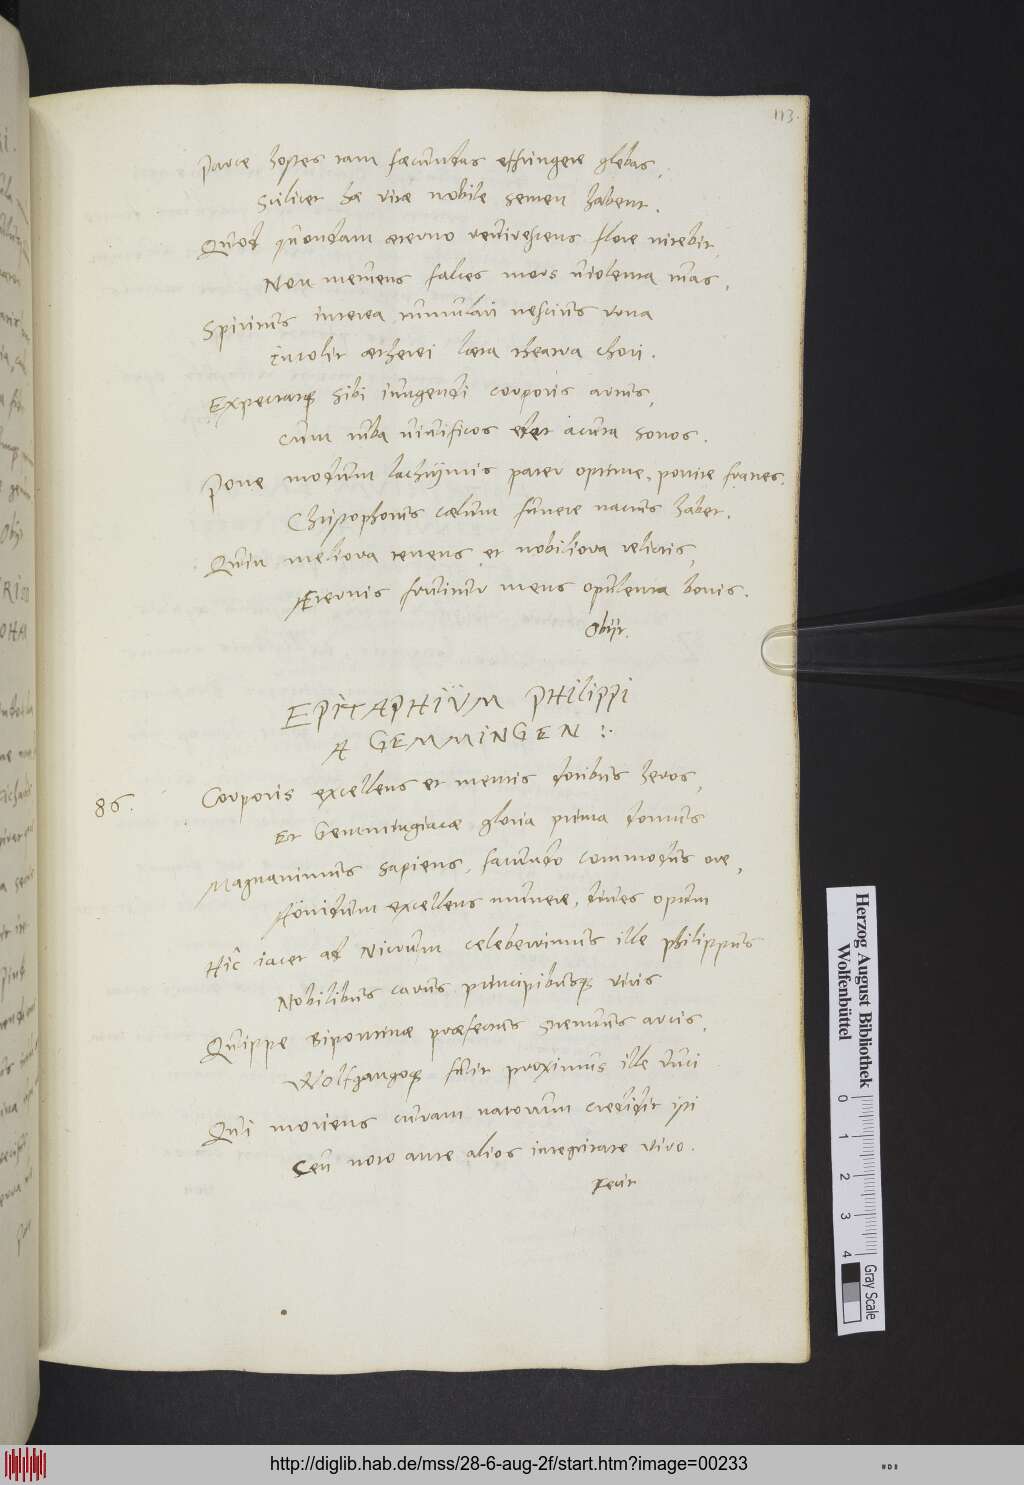 113.
Parce hostes tam fœcundas effringere glebas,
Scilicet hæ vitæ nobile semen habent.
Quod quondam æterno reviviscens flore nitebit,
Non metuens falces mors violenta tuas,
Spiritus interea tumulari nescius urna
Incolit ætherei læta theatra chori.
Expectatque sibi iungendi corporis artus,
Cum tuba vivificos edet acuta sonos.
Pone modum lachrymis pater optime, ponite fratres,
Christophorus cælum funere natus habet.
Quin meliora tenens et nobiliora relictis,
Æternis fruitur mens opulenta bonis.
Obijt.
EPITAPHIUM PHILIPPI
A GEMMINGEN :.
86. Corporis excellens et mentis dotibus heros,
Et Gemmingiacæ gloria prima domus
Magnanimus sapiens, facundo commodus ore,
Aonidum excellens munere, dives opum
Hîc iacet ad Nicrum celeberrimus ille philippus
Nobilibus carus principibusque viris
Quippe Bipontinæ præfectus strenuus arcis,
Wolfgangoque fuit proximus ille duci
Qui moriens curam natorum credidit ipsi
Ceu noto ante alios integritate viro.
Fecit
Herzog August Bibliothek
Wolfenbüttel
0 1 2 3 4
Gray Scale
http://diglib.hab.de/mss/28-6-aug-2f/start.htm?image=00233